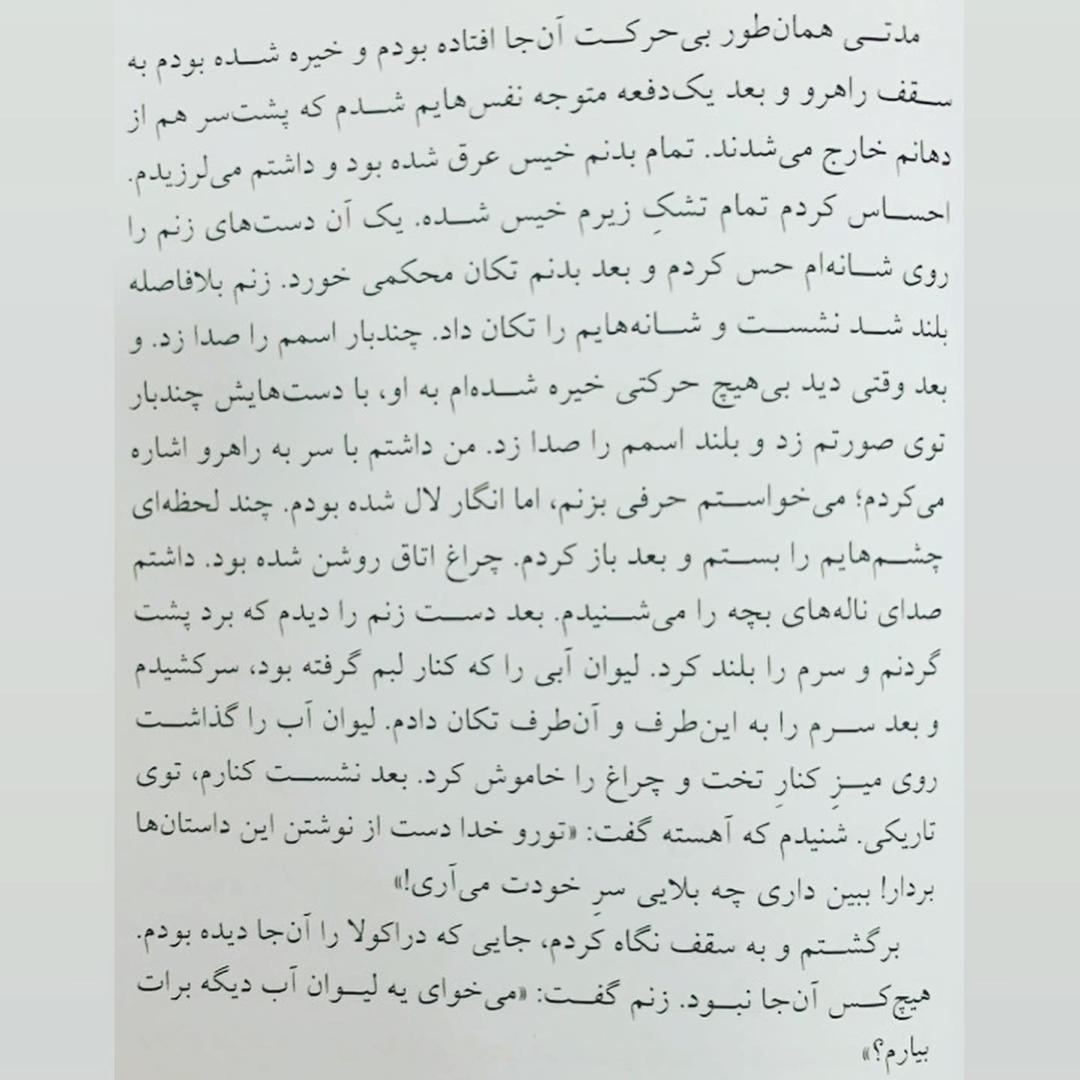 مدتی همان‌طور بی‌حرکت آن‌جا افتاده بودم و خیره شده بودم به
سقف راهرو و بعد یک‌دفعه متوجه نفس‌هایم شدم که پشت‌سر هم از
دهانم خارج می‌شدند. تمام بدنم خیس عرق شده بود و داشتم می‌لرزیدم.
احساس کردم تمام تشکِ زیرم خیس شده. یک آن دست‌های زنم را
روی شانه‌ام حس کردم و بعد بدنم تکان محکمی خورد. زنم بلافاصله
بلند شد نشست و شانه‌هایم را تکان داد. چندبار اسمم را صدا زد. و
بعد وقتی دید بی‌هیچ حرکتی خیره شده‌ام به او، با دست‌هایش چندبار
توی صورتم زد و بلند اسمم را صدا زد. من داشتم با سر به راهرو اشاره
می‌کردم؛ می‌خواستم حرفی بزنم، اما انگار لال شده بودم. چند لحظه‌ای
چشم‌هایم را بستم و بعد باز کردم. چراغ اتاق روشن شده بود. داشتم
صدای ناله‌های بچه را می‌شنیدم. بعد دست زنم را دیدم که برد پشت
گردنم و سرم را بلند کرد. لیوان آبی را که کنار لبم گرفته بود، سرکشیدم
و بعد سرم را به این‌طرف و آن‌طرف تکان دادم. لیوان آب را گذاشت
روی میزِ کنارِ تخت و چراغ را خاموش کرد. بعد نشست کنارم، توی
تاریکی. شنیدم که آهسته گفت: «تورو خدا دست از نوشتن این داستان‌ها
بردار! ببین داری چه بلایی سرِ خودت می‌آری!»
برگشتم و به سقف نگاه کردم، جایی که دراکولا را آن‌جا دیده بودم.
هیچ‌کس آن‌جا نبود. زنم گفت: «می‌خوای یه لیوان آب دیگه برات
بیارم؟»